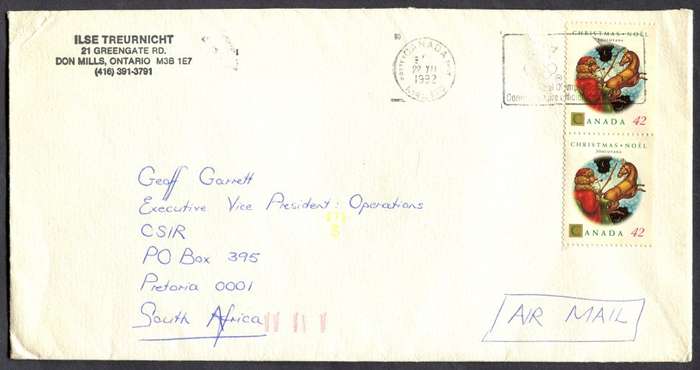 ILSE TREURNICHT
21 GREENGATE RD.
DON MILLS, ONTARIO M3B 1E7
(416) 391-3791
CANADA
1992
CHRISTMAS • NOËL
CANADA 42
CHRISTMAS • NOËL
CANADA 42
Geoff Garrett
Executive Vice President: Operations
CSIR
PO Box 395
Pretoria 0001
South Africa
AIR MAIL